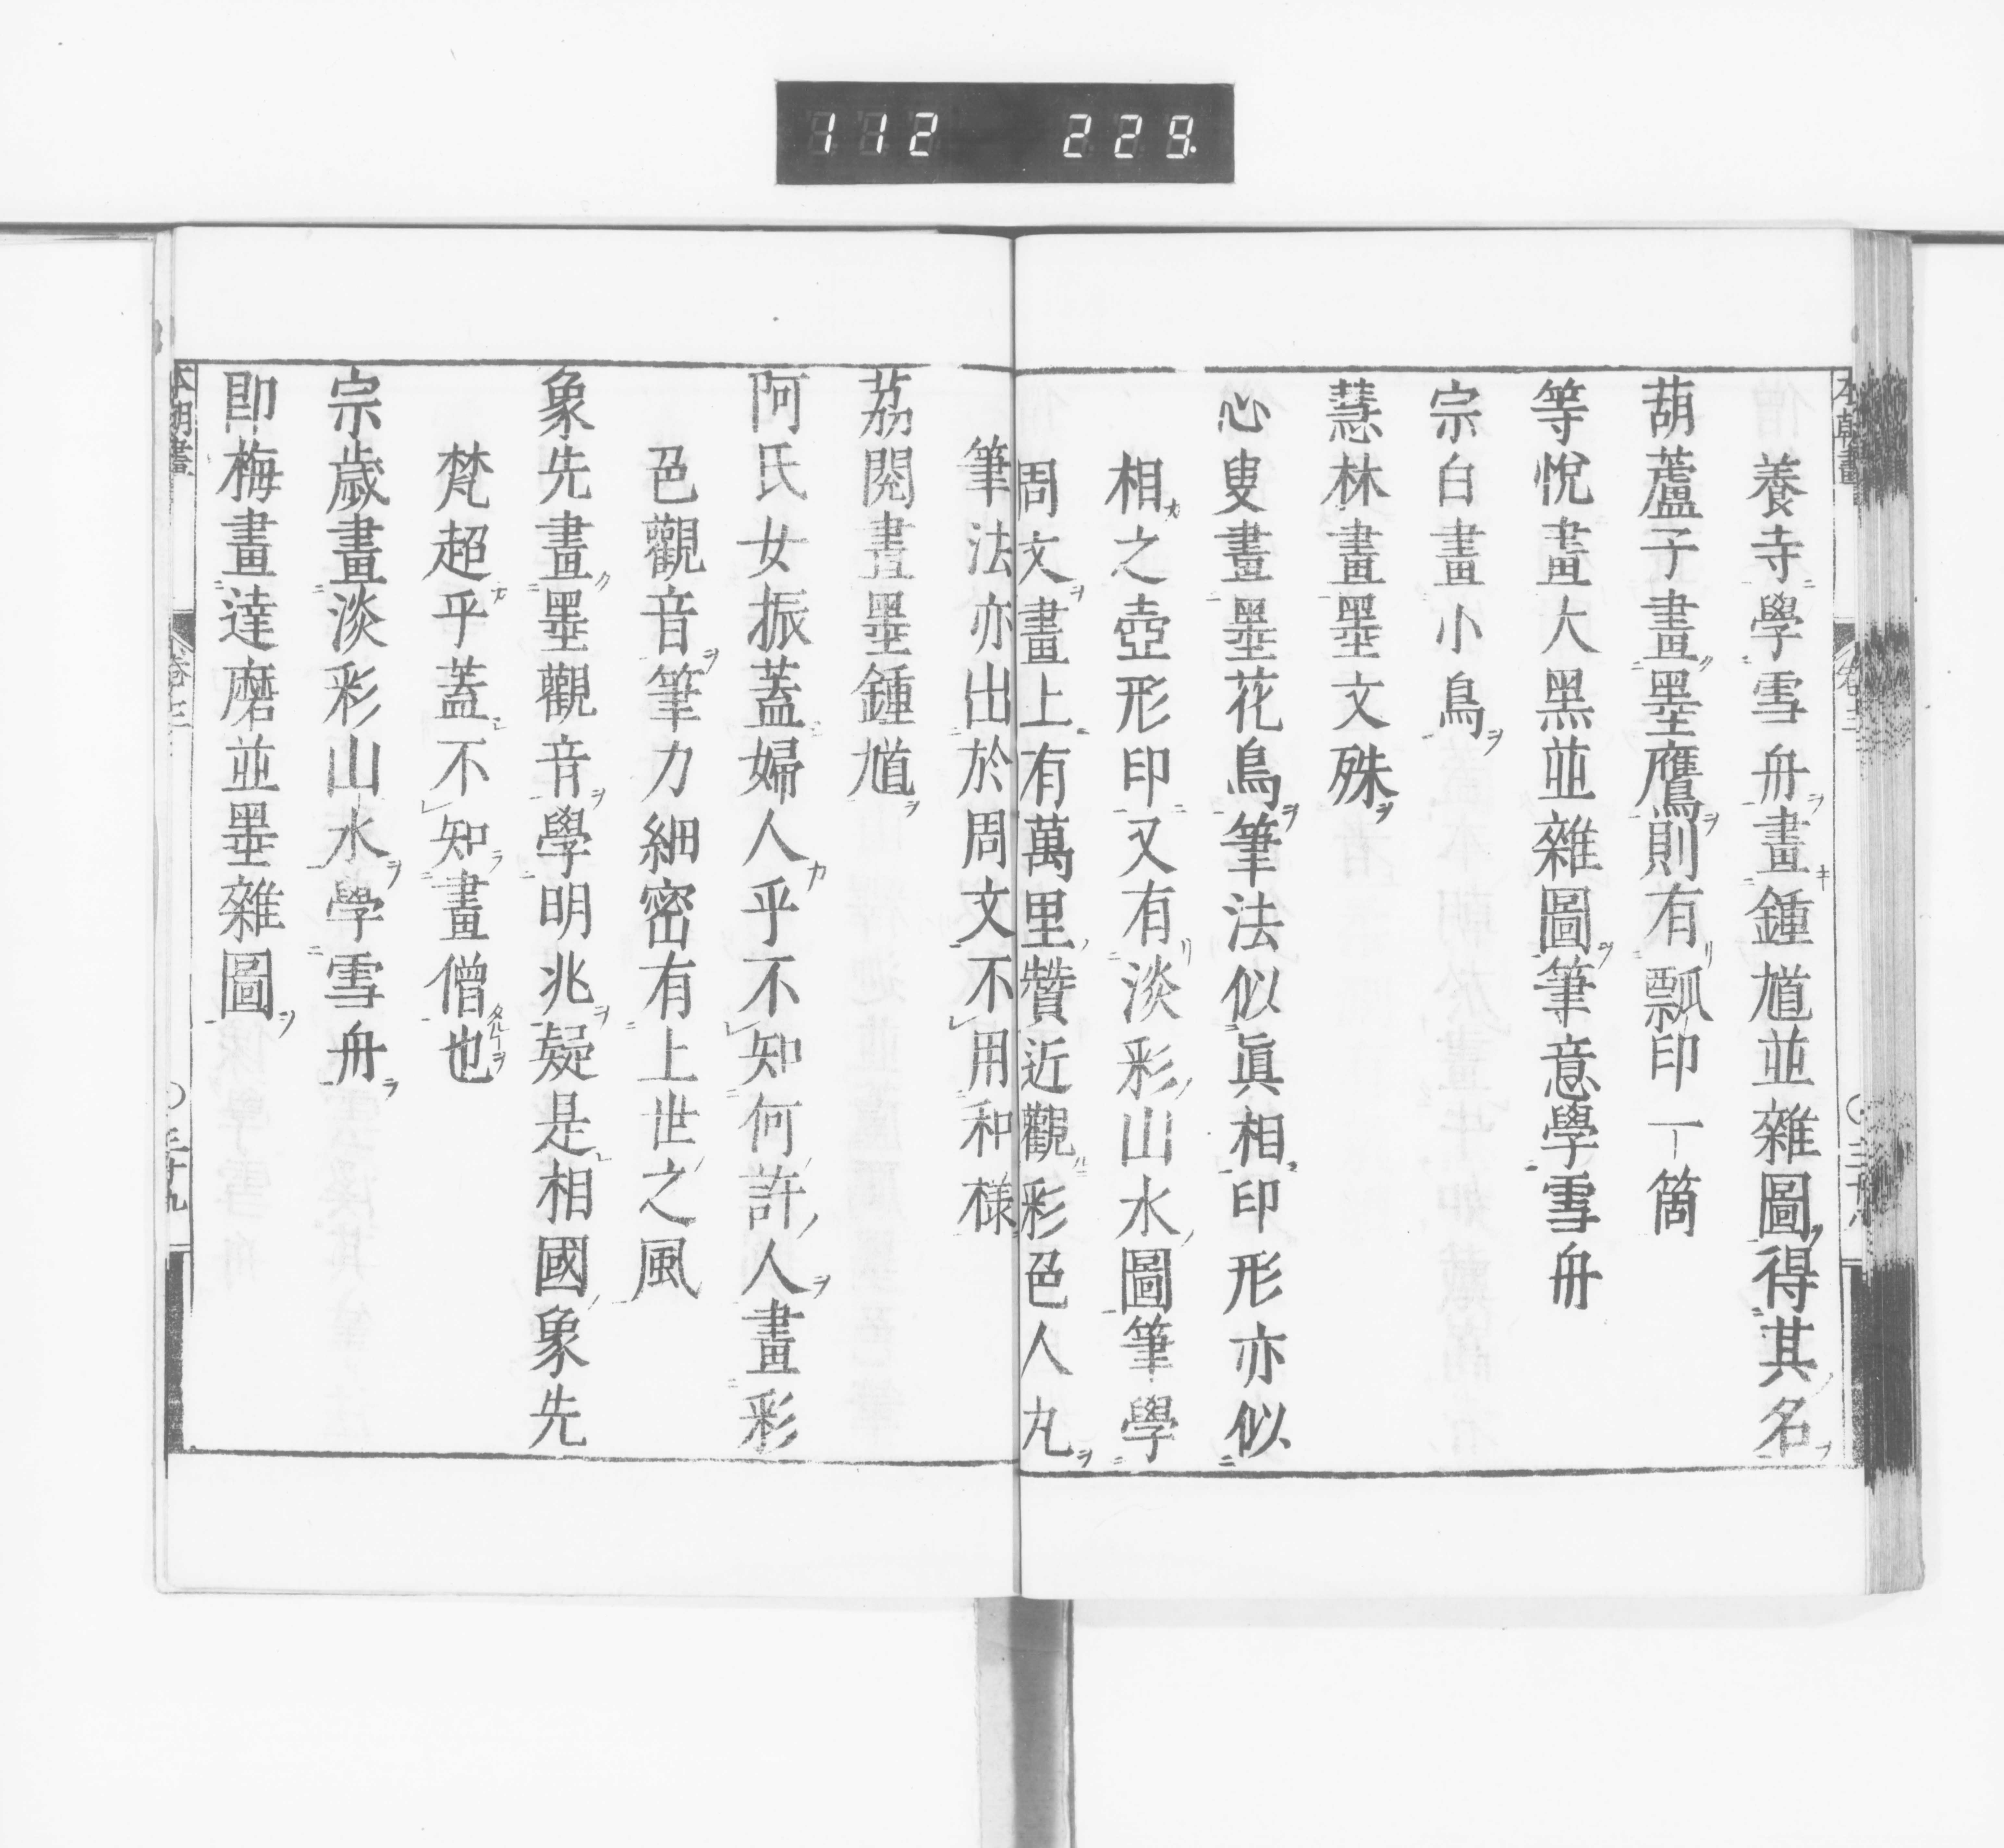 112 229
養寺學雪舟畫鍾馗並雜圖得其名
葫蘆子畫墨鷹則有瓢印一箇
等悅畫大黑並雜圖筆意學雪舟
宗白畫小鳥
慧林畫墨文殊
心叟畫墨花鳥筆法似眞相印形亦似
相之壺形印又有淡彩山水圖筆學
周文畫上有萬里贊近觀彩色人丸
筆法亦出於周文不用和樣
荔閱畫墨鍾馗
阿氏女振蓋婦人乎不知何許人畫彩
色觀音筆力細密有上世之風
象先畫墨觀音學明兆疑是相國象先
梵超乎蓋不知畫僧也
宗歲畫淡彩山水學雪舟
即梅畫達磨並墨雜圖
本朝畫
卷三
三十九